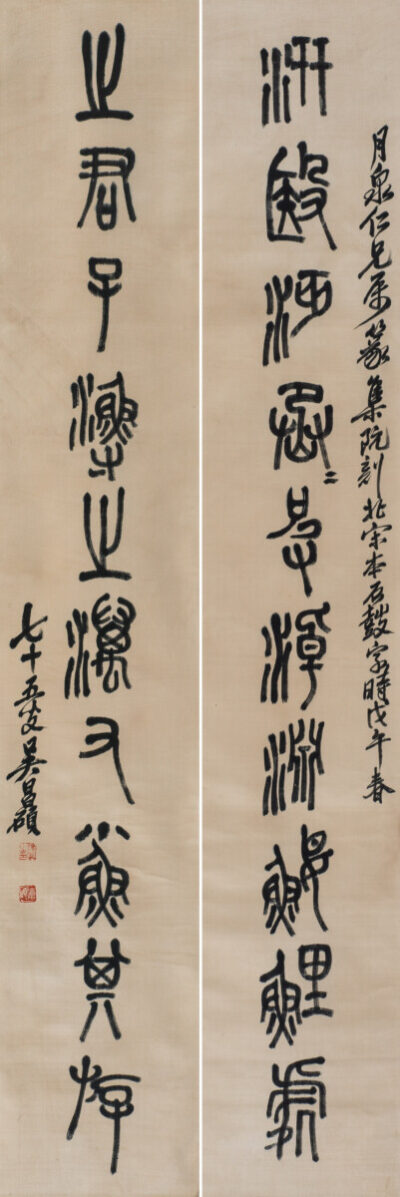 月泉仁兄屬篆集阮刻北宋本石鼓字時戊午春
汧殹沔丞〻皮淖淵鰋鯉處
之君子漁之澫又小魚其斿
七十五叟吳昌碩